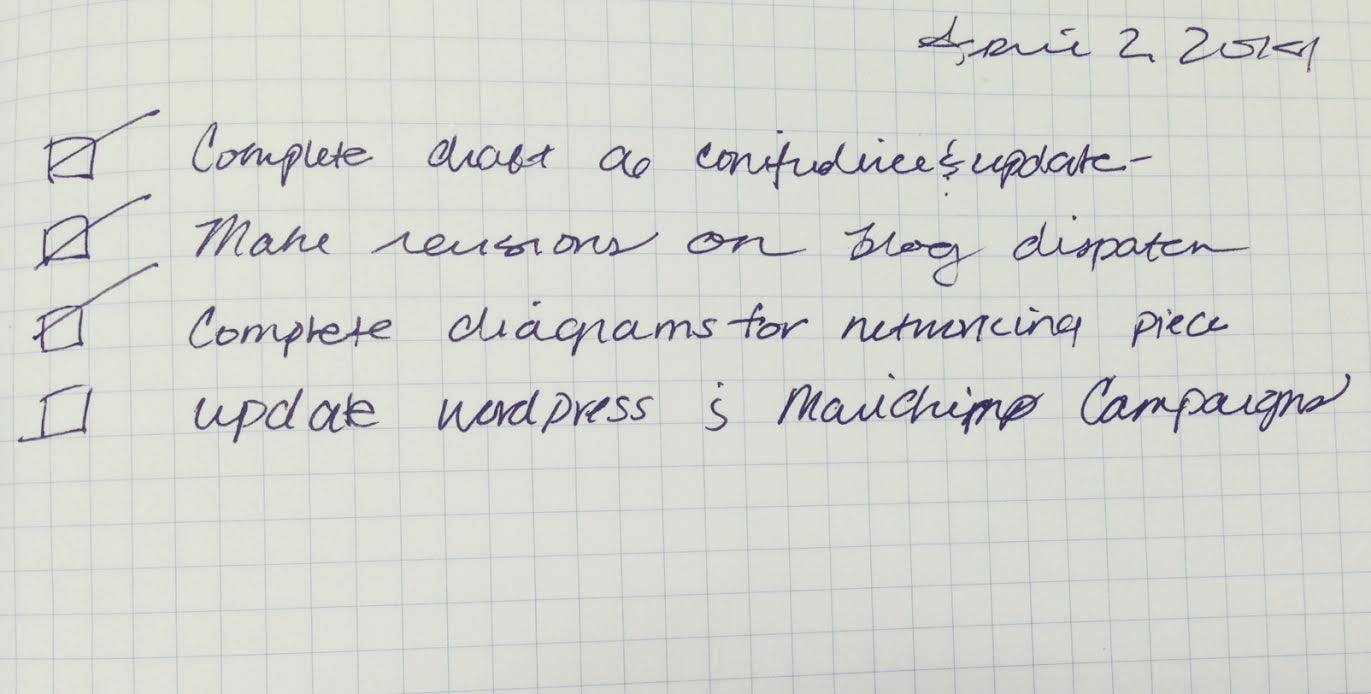 April 2 2014
Complete draft of conference & update -
Make revisions on blog dispatch
Complete diagrams for networking piece
update wordpress & Mailchimp Campaigns